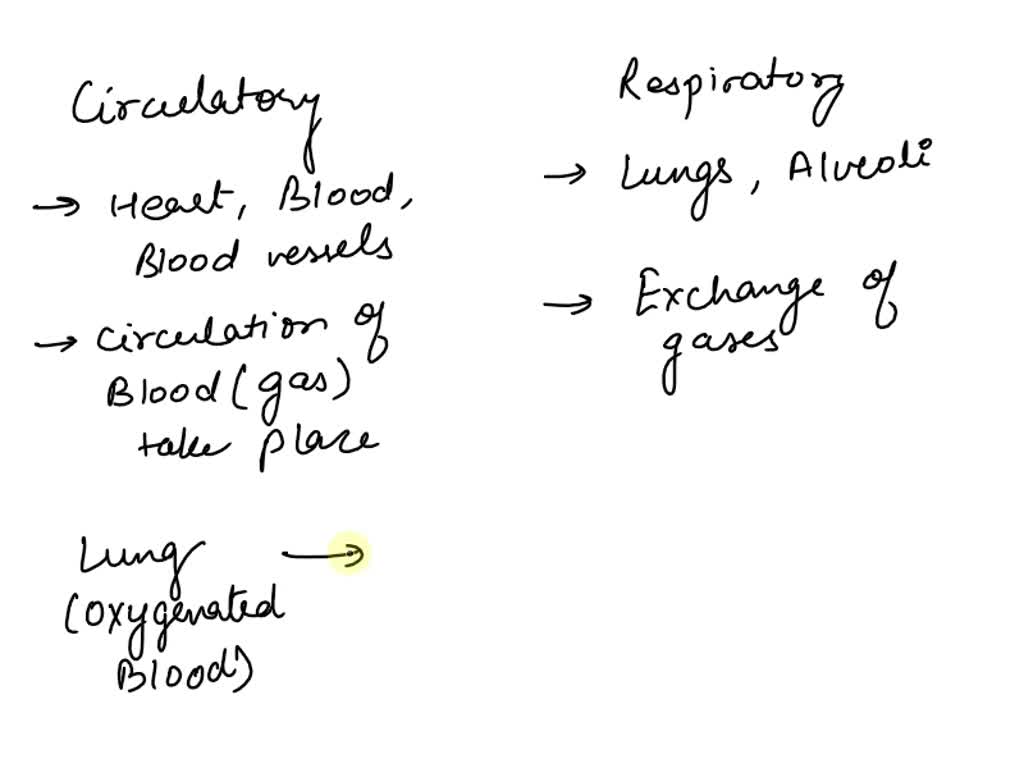 Circulatory
→ Heart, Blood,
Blood vessels
→ circulation of
Blood (gas)
take place
Respiratory
→ Lungs, Alveoli
→ Exchange of
gases
Lung →
(oxygenated
Blood)